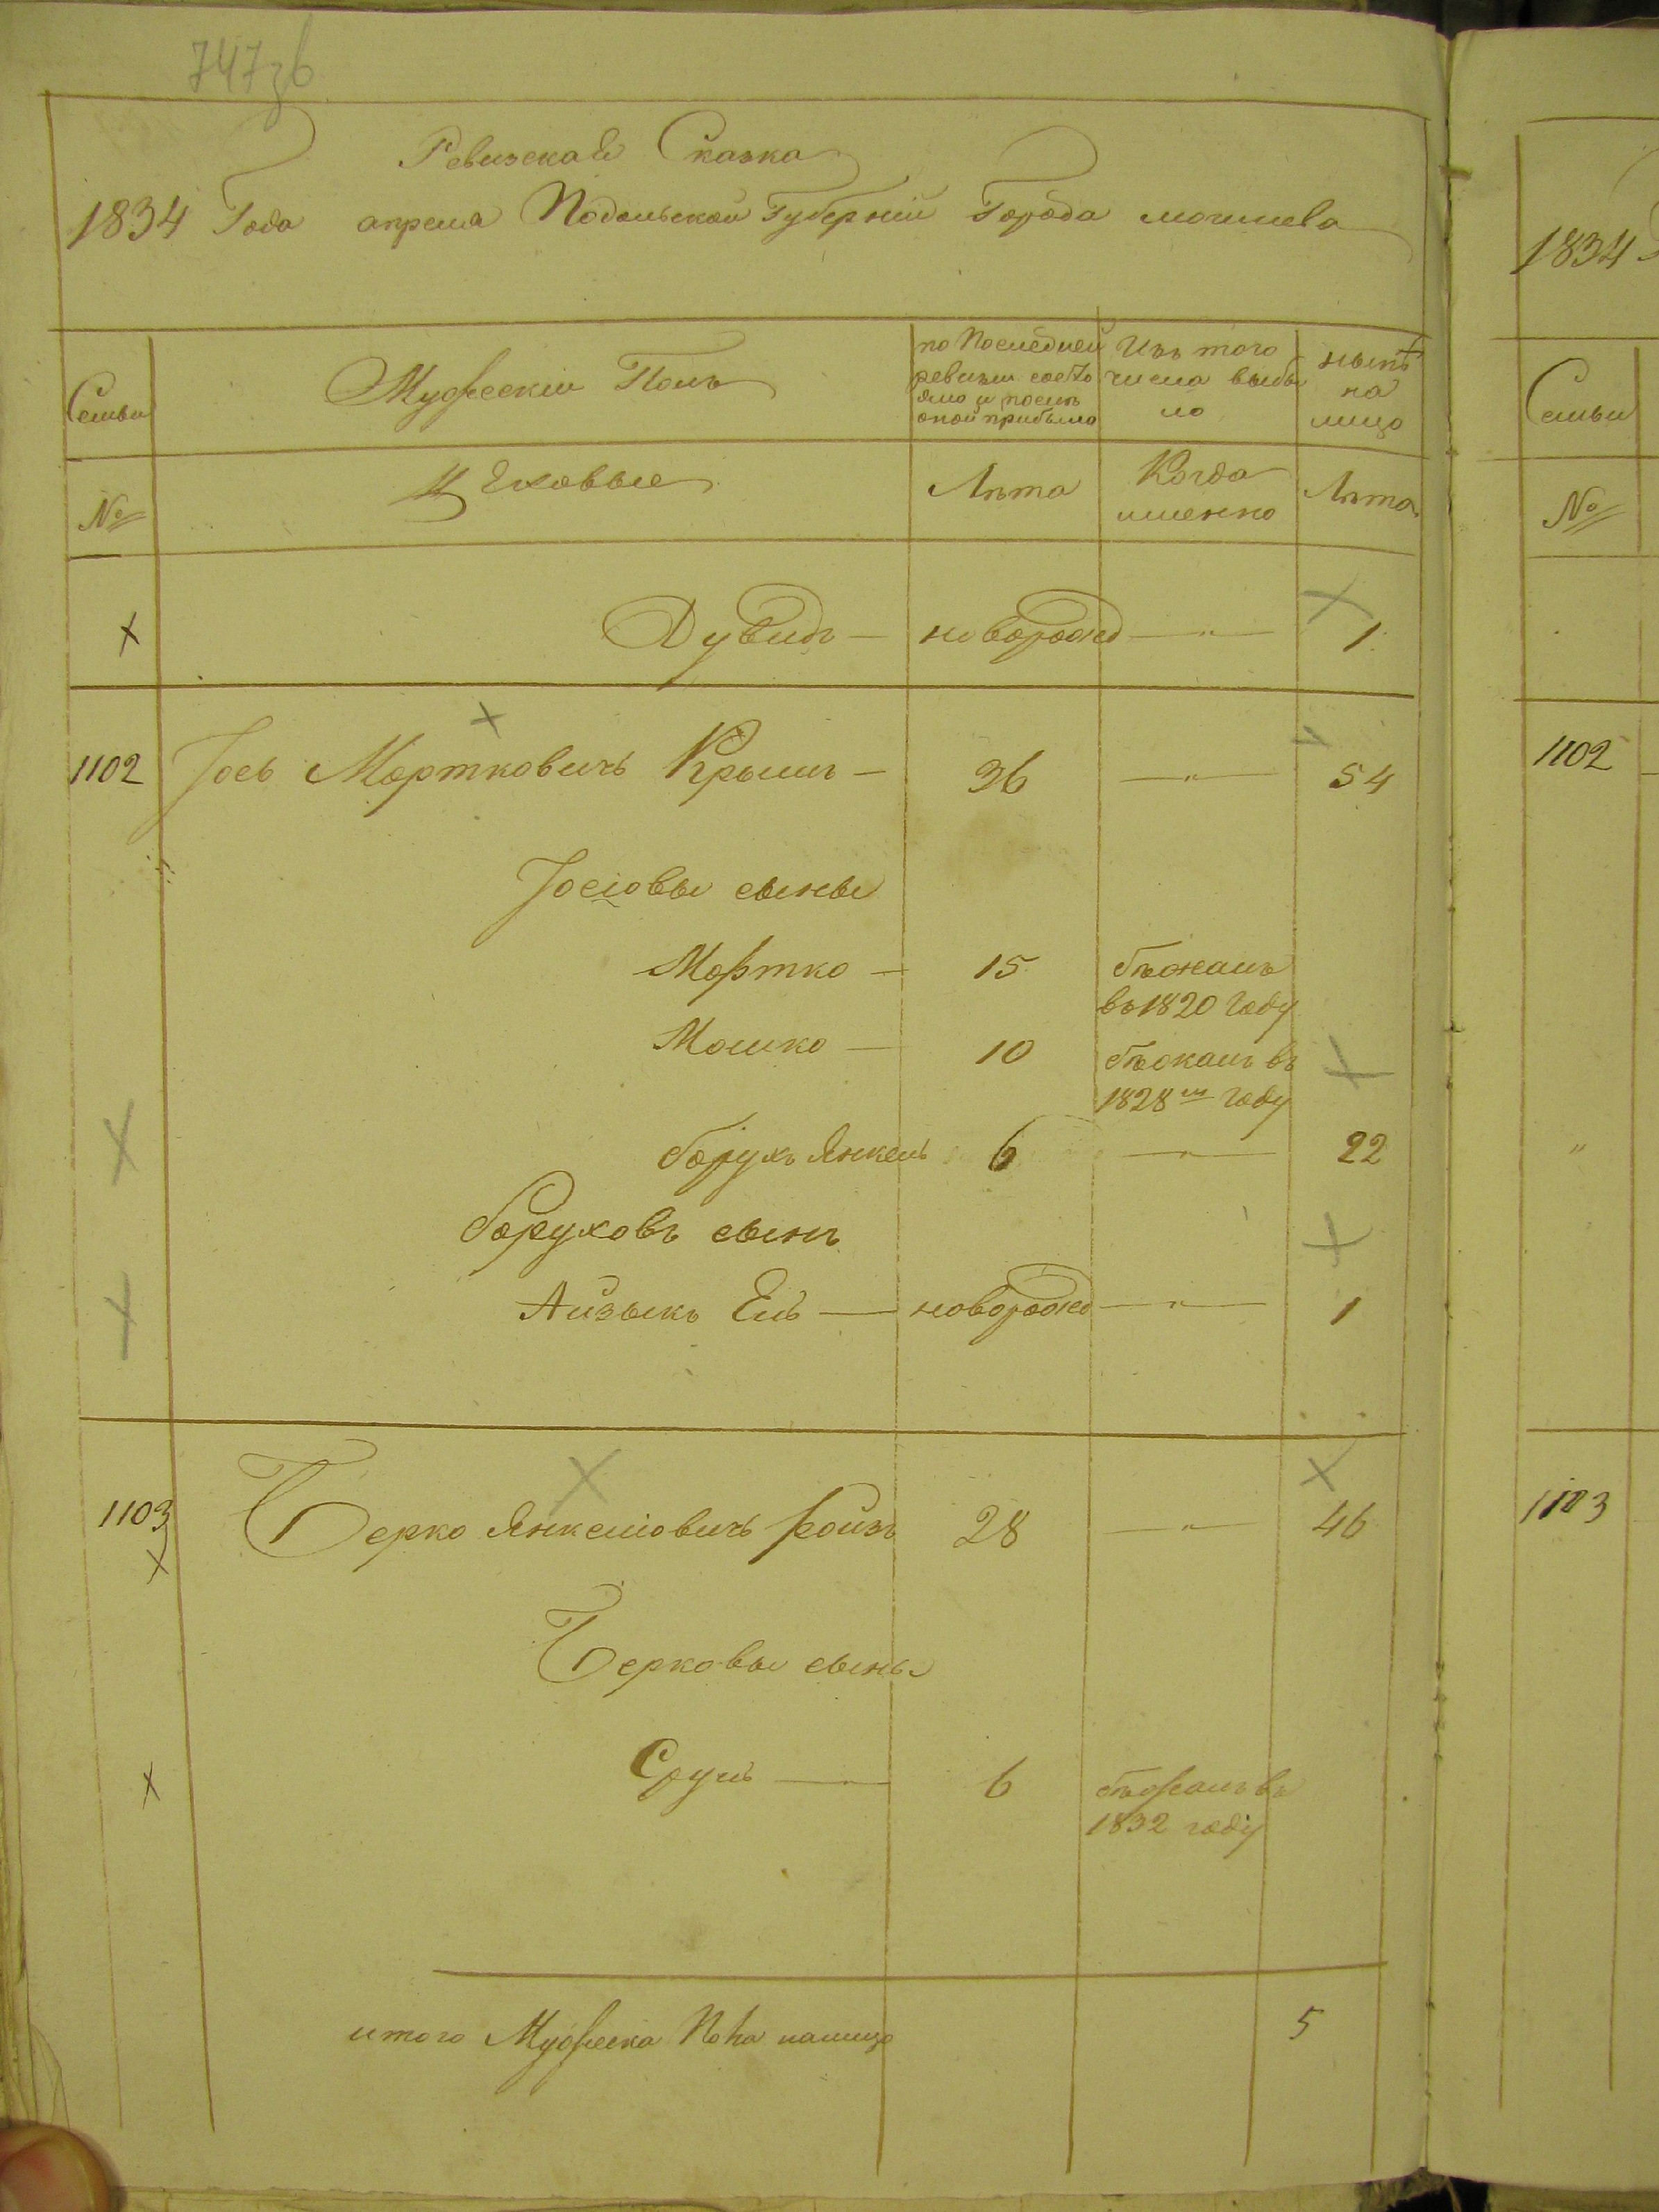 747зв
Ревизская Сказка
1834 Года апреля Подольской Губерніи Города могилева
1834
Семьи
Мужескій Полъ
по Последней ревизіи состояло и послѣ оной прибыло
Изъ того числа выбыло
нынѣ на лицо
Семьи
№
Цеховые
Лѣта
Когда именно
Лѣта
№
Дувидъ — новорожд — " — 1
1102 Іось Мортковичъ Крымъ — 36 — " — 54
1102
Іосіовы сыны
Мортко — 15 бѣжалъ
въ 1820 Году
Мошко — 10 бѣжалъ въ
1828м Году
борухъ Янкель 6 — " — 22
боруховъ сынъ
Айзыкъ Ель — новорожд — " — 1
1103 Берко Янкеліовичъ Ройзъ 28 — " — 46
1103
Берковы сыны
Сруль — 6 бѣжалъ въ
1832 году
итого Мужеска Пола налицо 5